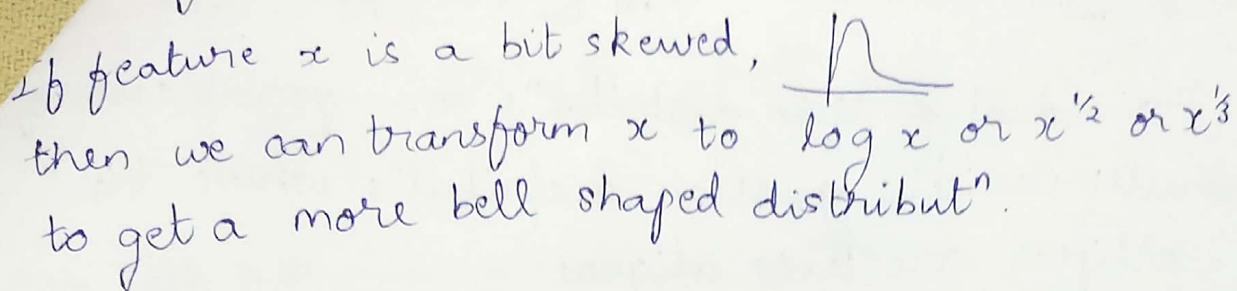 If feature x is a bit skewed,
then we can transform x to log x or x^1/2 or x^1/3
to get a more bell shaped distributⁿ.